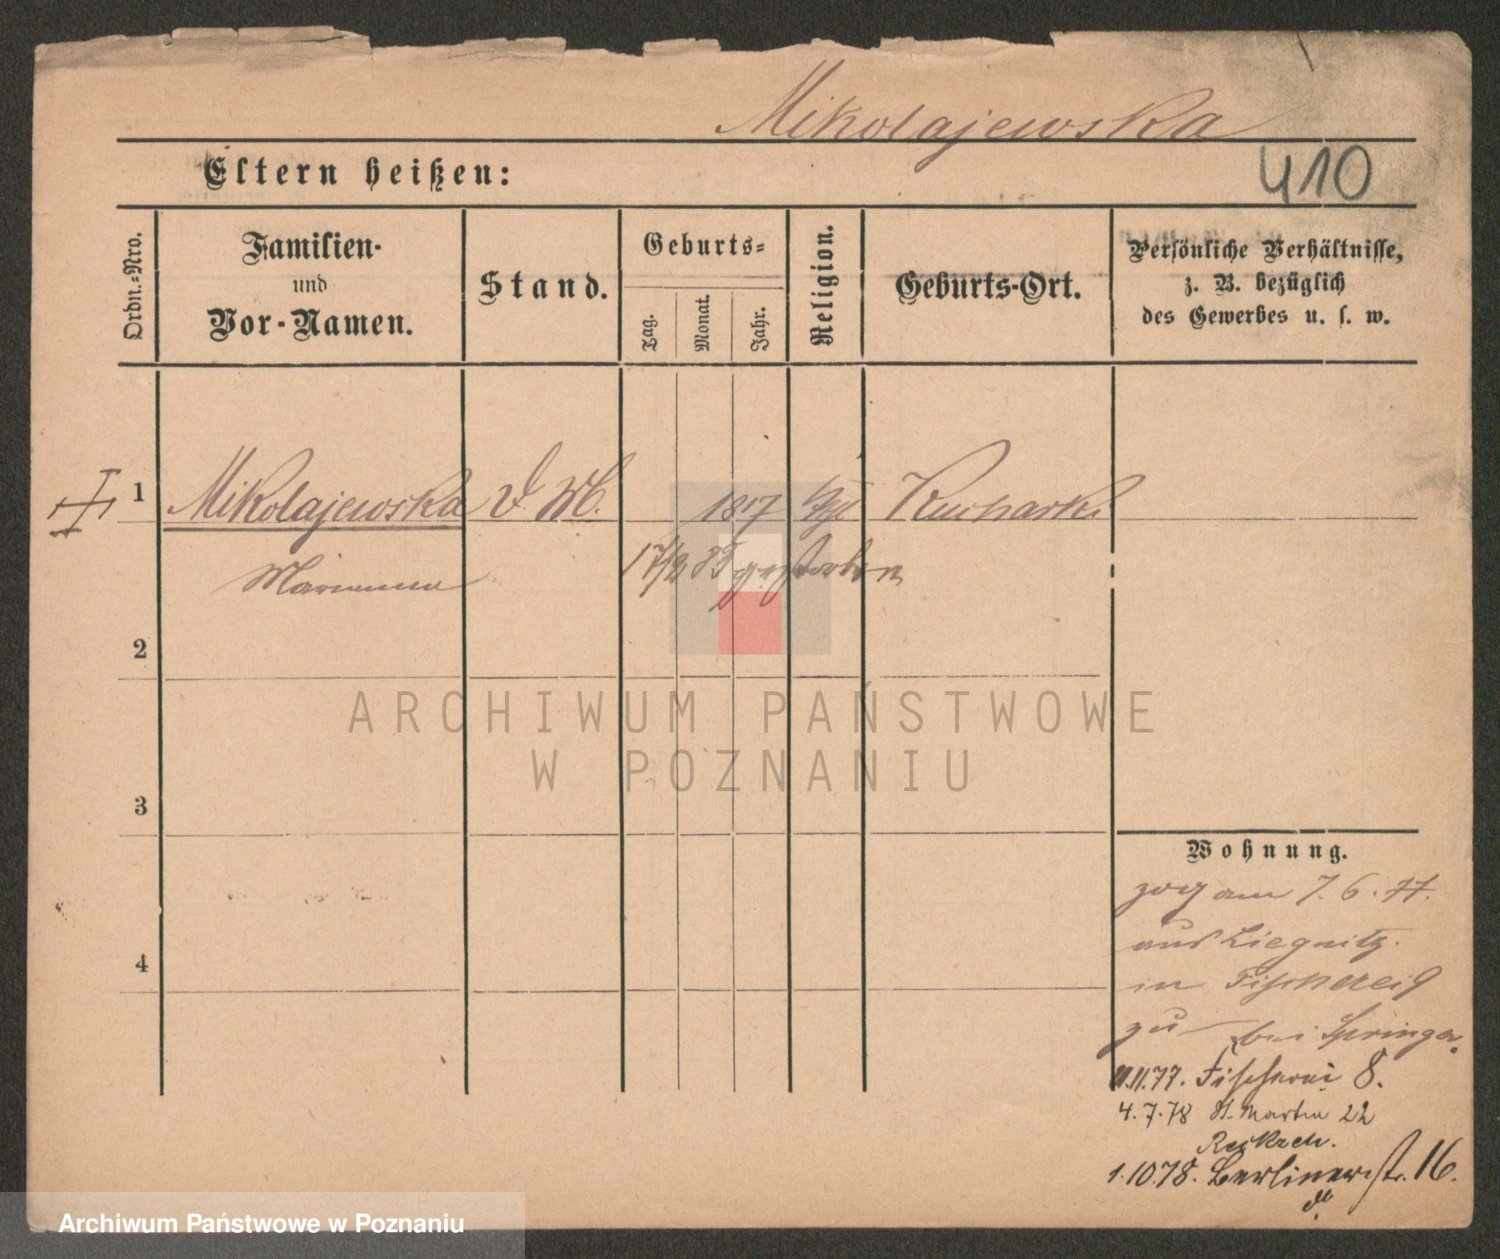 Mikolajewska
410
Eltern heißen:
Ordn.-Nro.
Familien-
und
Vor-Namen.
Stand.
Geburts-
Tag.
Monat.
Jahr.
Religion.
Geburts-Ort.
Persönliche Verhältnisse,
z. B. bezüglich
des Gewerbes u. s. w.
1 Mikolajewska 1817 Kucharki
Marianna 17/2 85 gestorben
2
ARCHIWUM PAŃSTWOWE
W POZNANIU
3
4
Wohnung.
zog am 7. 6. 77.
aus Liegnitz.
in Fischerei 9
zu bei Springer.
11.11.77. Fischerei 8.
4.7.78 St. Martin 22
1.10.78. Berlinerstr. 16.
Archiwum Państwowe w Poznaniu